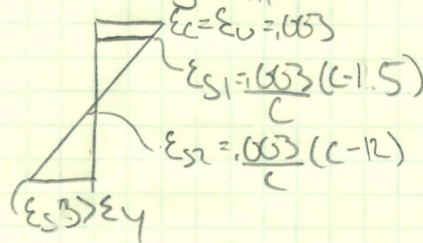 εc=εu=.003
εs1=.003/c (c-1.5)
εs2=.003/c (c-12)
(εs3>εy